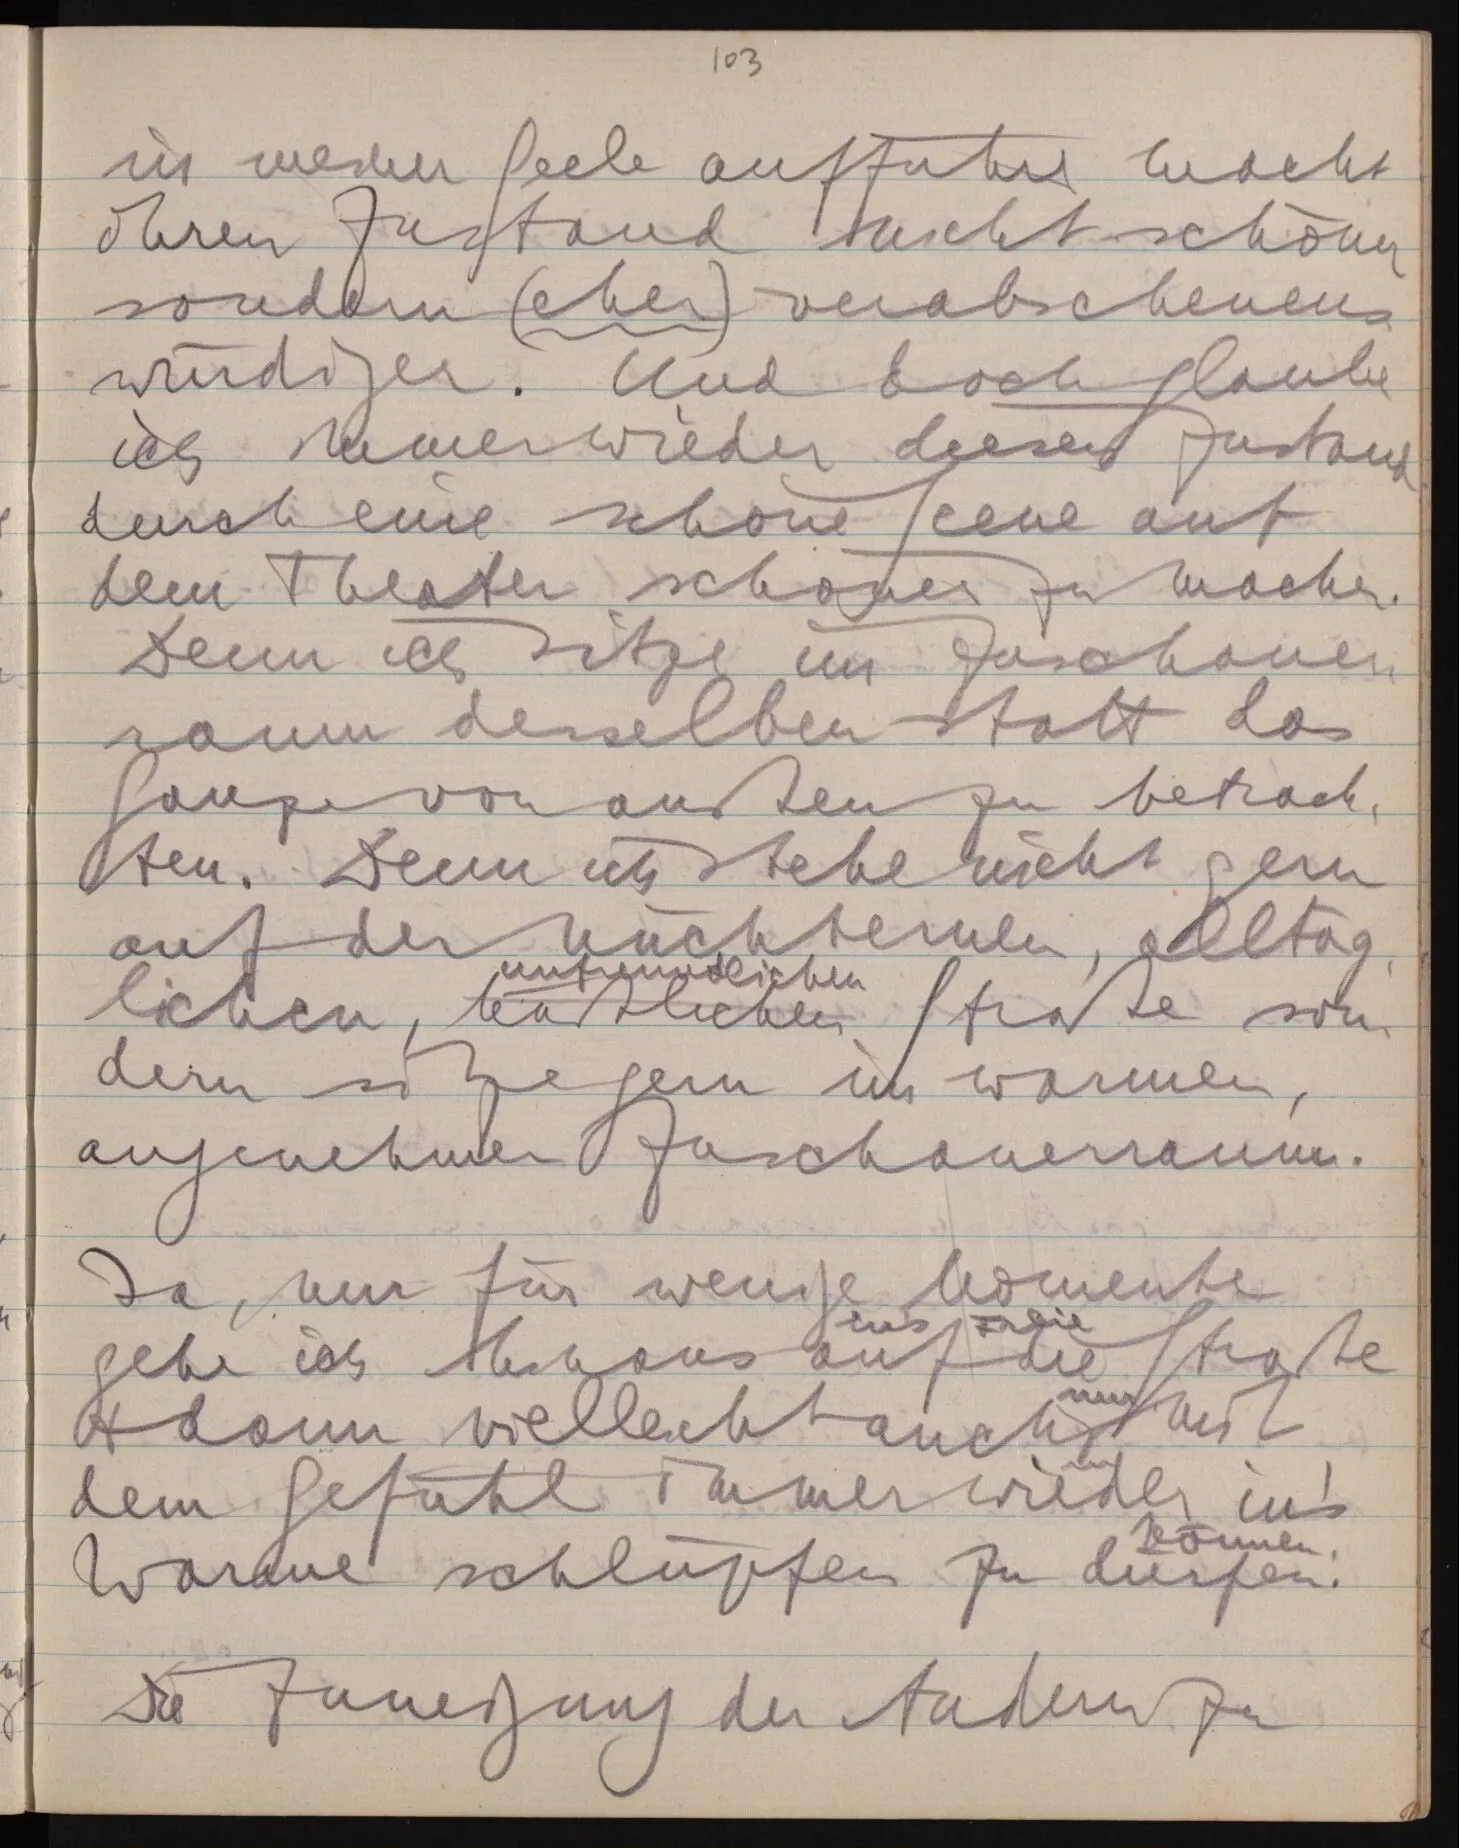 103
in meiner Seele aufführe macht
ihren Zustand nicht schöner
sondern (eher) verabscheuens
würdiger. Und doch glaube
ich immer wieder diesen Zustand
durch eine schöne Scene auf
dem Theater schöner zu machen.
Denn ich sitze im Zuschauer
raum desselben statt das
Ganze von außen zu betrach-
ten. Denn ich stehe nicht gern
auf der nüchternen, alltäg
unfreundlichen
lichen, Straße son
dern sitze gern im warmen,
angenehmen Zuschauerraum.
Ja, nur für wenige Momente
ins Freie
gehe ich hinaus auf die Straße
nur
& dann vielleicht auch mit
dem Gefühl immer wieder in's
können.
Warme schlüpfen zu dürfen.
Die Zuneigung der Andern zu